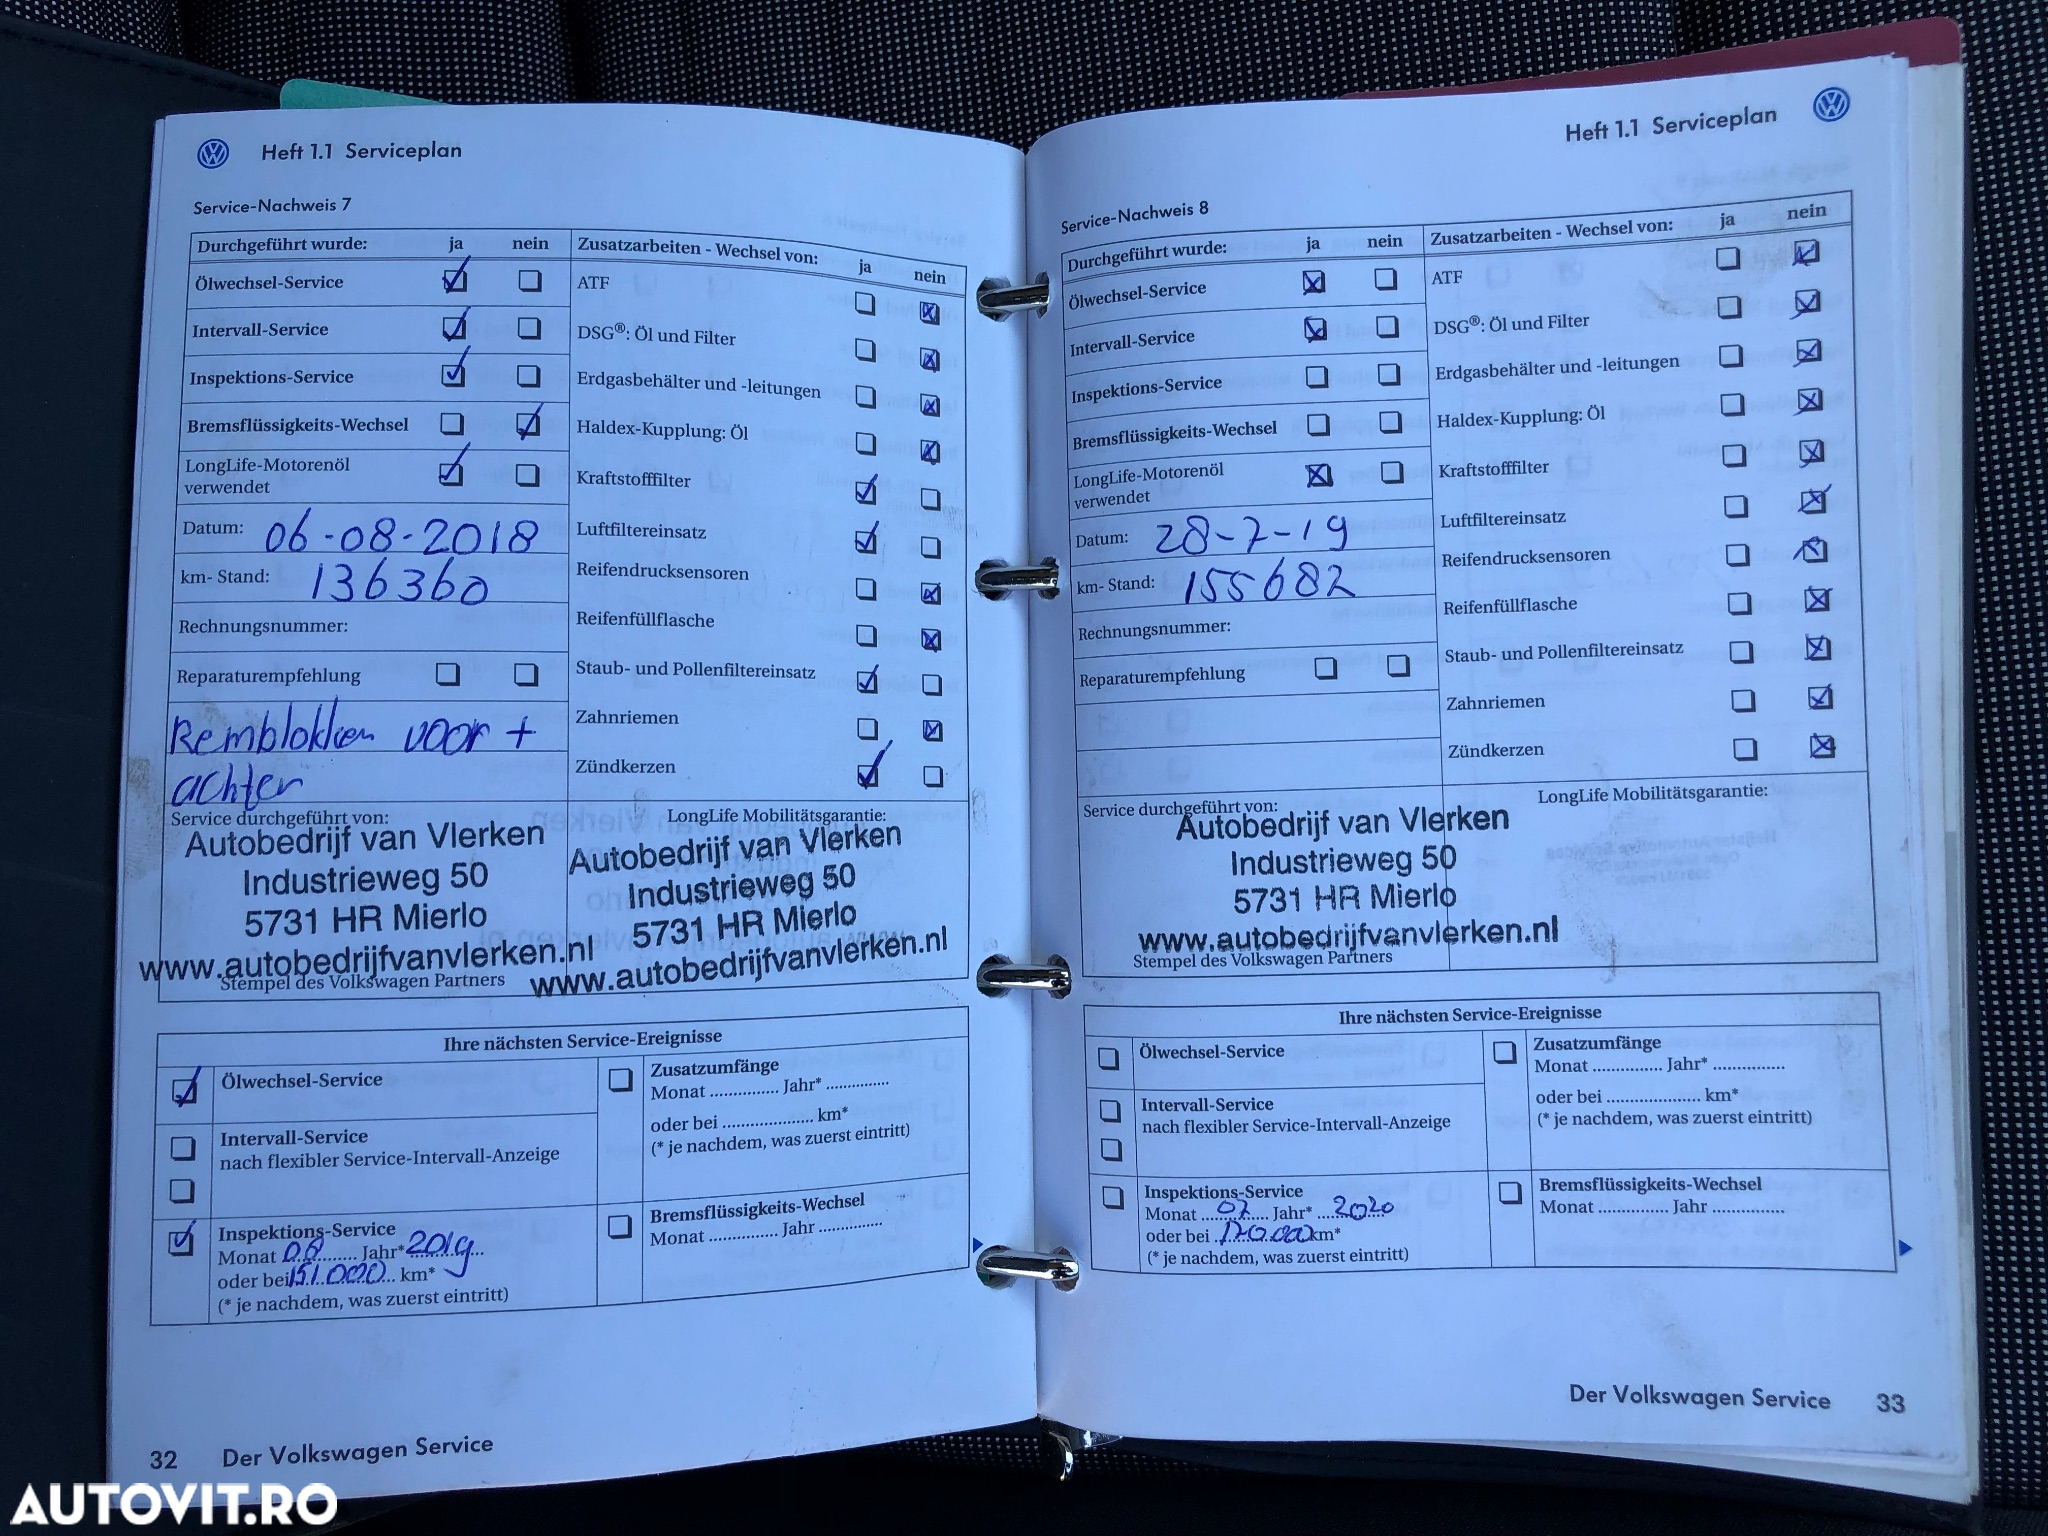 Heft 1.1 Serviceplan
Service-Nachweis 7
Durchgeführt wurde: ja nein
Ölwechsel-Service
Intervall-Service
Inspektions-Service
Bremsflüssigkeits-Wechsel
LongLife-Motorenöl
verwendet
Datum: 06-08-2018
km- Stand: 136360
Rechnungsnummer:
Reparaturempfehlung
Remblokken voor +
achter
Zusatzarbeiten - Wechsel von: ja nein
ATF
DSG®: Öl und Filter
Erdgasbehälter und -leitungen
Haldex-Kupplung: Öl
Kraftstofffilter
Luftfiltereinsatz
Reifendrucksensoren
Reifenfüllflasche
Staub- und Pollenfiltereinsatz
Zahnriemen
Zündkerzen
Service durchgeführt von:
Autobedrijf van Vlerken
Industrieweg 50
5731 HR Mierlo
www.autobedrijfvanvlerken.nl
Stempel des Volkswagen Partners
LongLife Mobilitätsgarantie:
Autobedrijf van Vlerken
Industrieweg 50
5731 HR Mierlo
www.autobedrijfvanvlerken.nl
Ihre nächsten Service-Ereignisse
Ölwechsel-Service
Intervall-Service
nach flexibler Service-Intervall-Anzeige
Inspektions-Service
Monat 08 Jahr* 2019
oder bei 151.000 km*
(* je nachdem, was zuerst eintritt)
Zusatzumfänge
Monat ............... Jahr* ..............
oder bei .................... km*
(* je nachdem, was zuerst eintritt)
Bremsflüssigkeits-Wechsel
Monat ............... Jahr ..............
32 Der Volkswagen Service
Heft 1.1 Serviceplan
Service-Nachweis 8
Durchgeführt wurde: ja nein
Ölwechsel-Service
Intervall-Service
Inspektions-Service
Bremsflüssigkeits-Wechsel
LongLife-Motorenöl
verwendet
Datum: 28-7-19
km- Stand: 155682
Rechnungsnummer:
Reparaturempfehlung
Zusatzarbeiten - Wechsel von: ja nein
ATF
DSG®: Öl und Filter
Erdgasbehälter und -leitungen
Haldex-Kupplung: Öl
Kraftstofffilter
Luftfiltereinsatz
Reifendrucksensoren
Reifenfüllflasche
Staub- und Pollenfiltereinsatz
Zahnriemen
Zündkerzen
Service durchgeführt von:
Autobedrijf van Vlerken
Industrieweg 50
5731 HR Mierlo
www.autobedrijfvanvlerken.nl
Stempel des Volkswagen Partners
LongLife Mobilitätsgarantie:
Ihre nächsten Service-Ereignisse
Ölwechsel-Service
Intervall-Service
nach flexibler Service-Intervall-Anzeige
Inspektions-Service
Monat 07 Jahr* 2020
oder bei 170.000 km*
(* je nachdem, was zuerst eintritt)
Zusatzumfänge
Monat ............... Jahr* ...............
oder bei .................... km*
(* je nachdem, was zuerst eintritt)
Bremsflüssigkeits-Wechsel
Monat ............... Jahr ...............
Der Volkswagen Service 33
AUTOVIT.RO